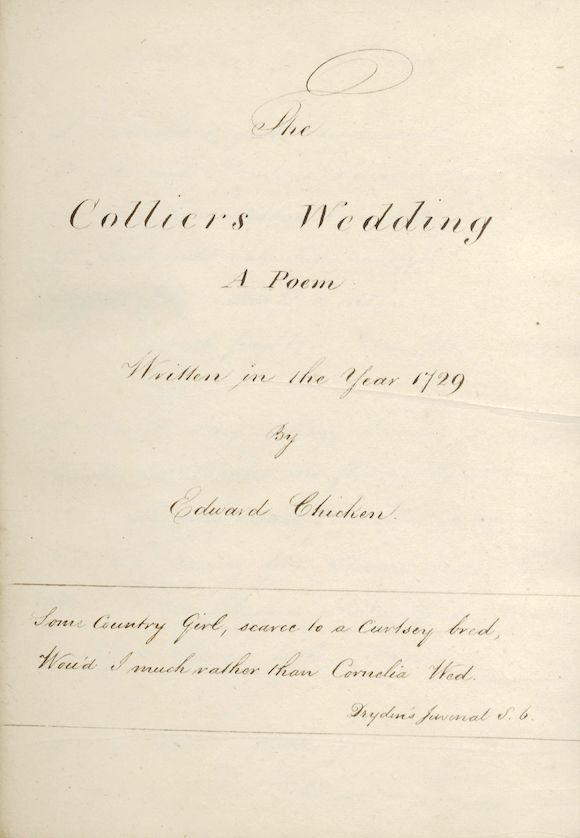 The
Colliers Wedding
A Poem
Written in the Year 1729
By
Edward Chicken.
Some Country Girl, scarce to a Curtsey bred,
Wou'd I much rather than Cornelia Wed.
Dryden's Juvenal S. 6.